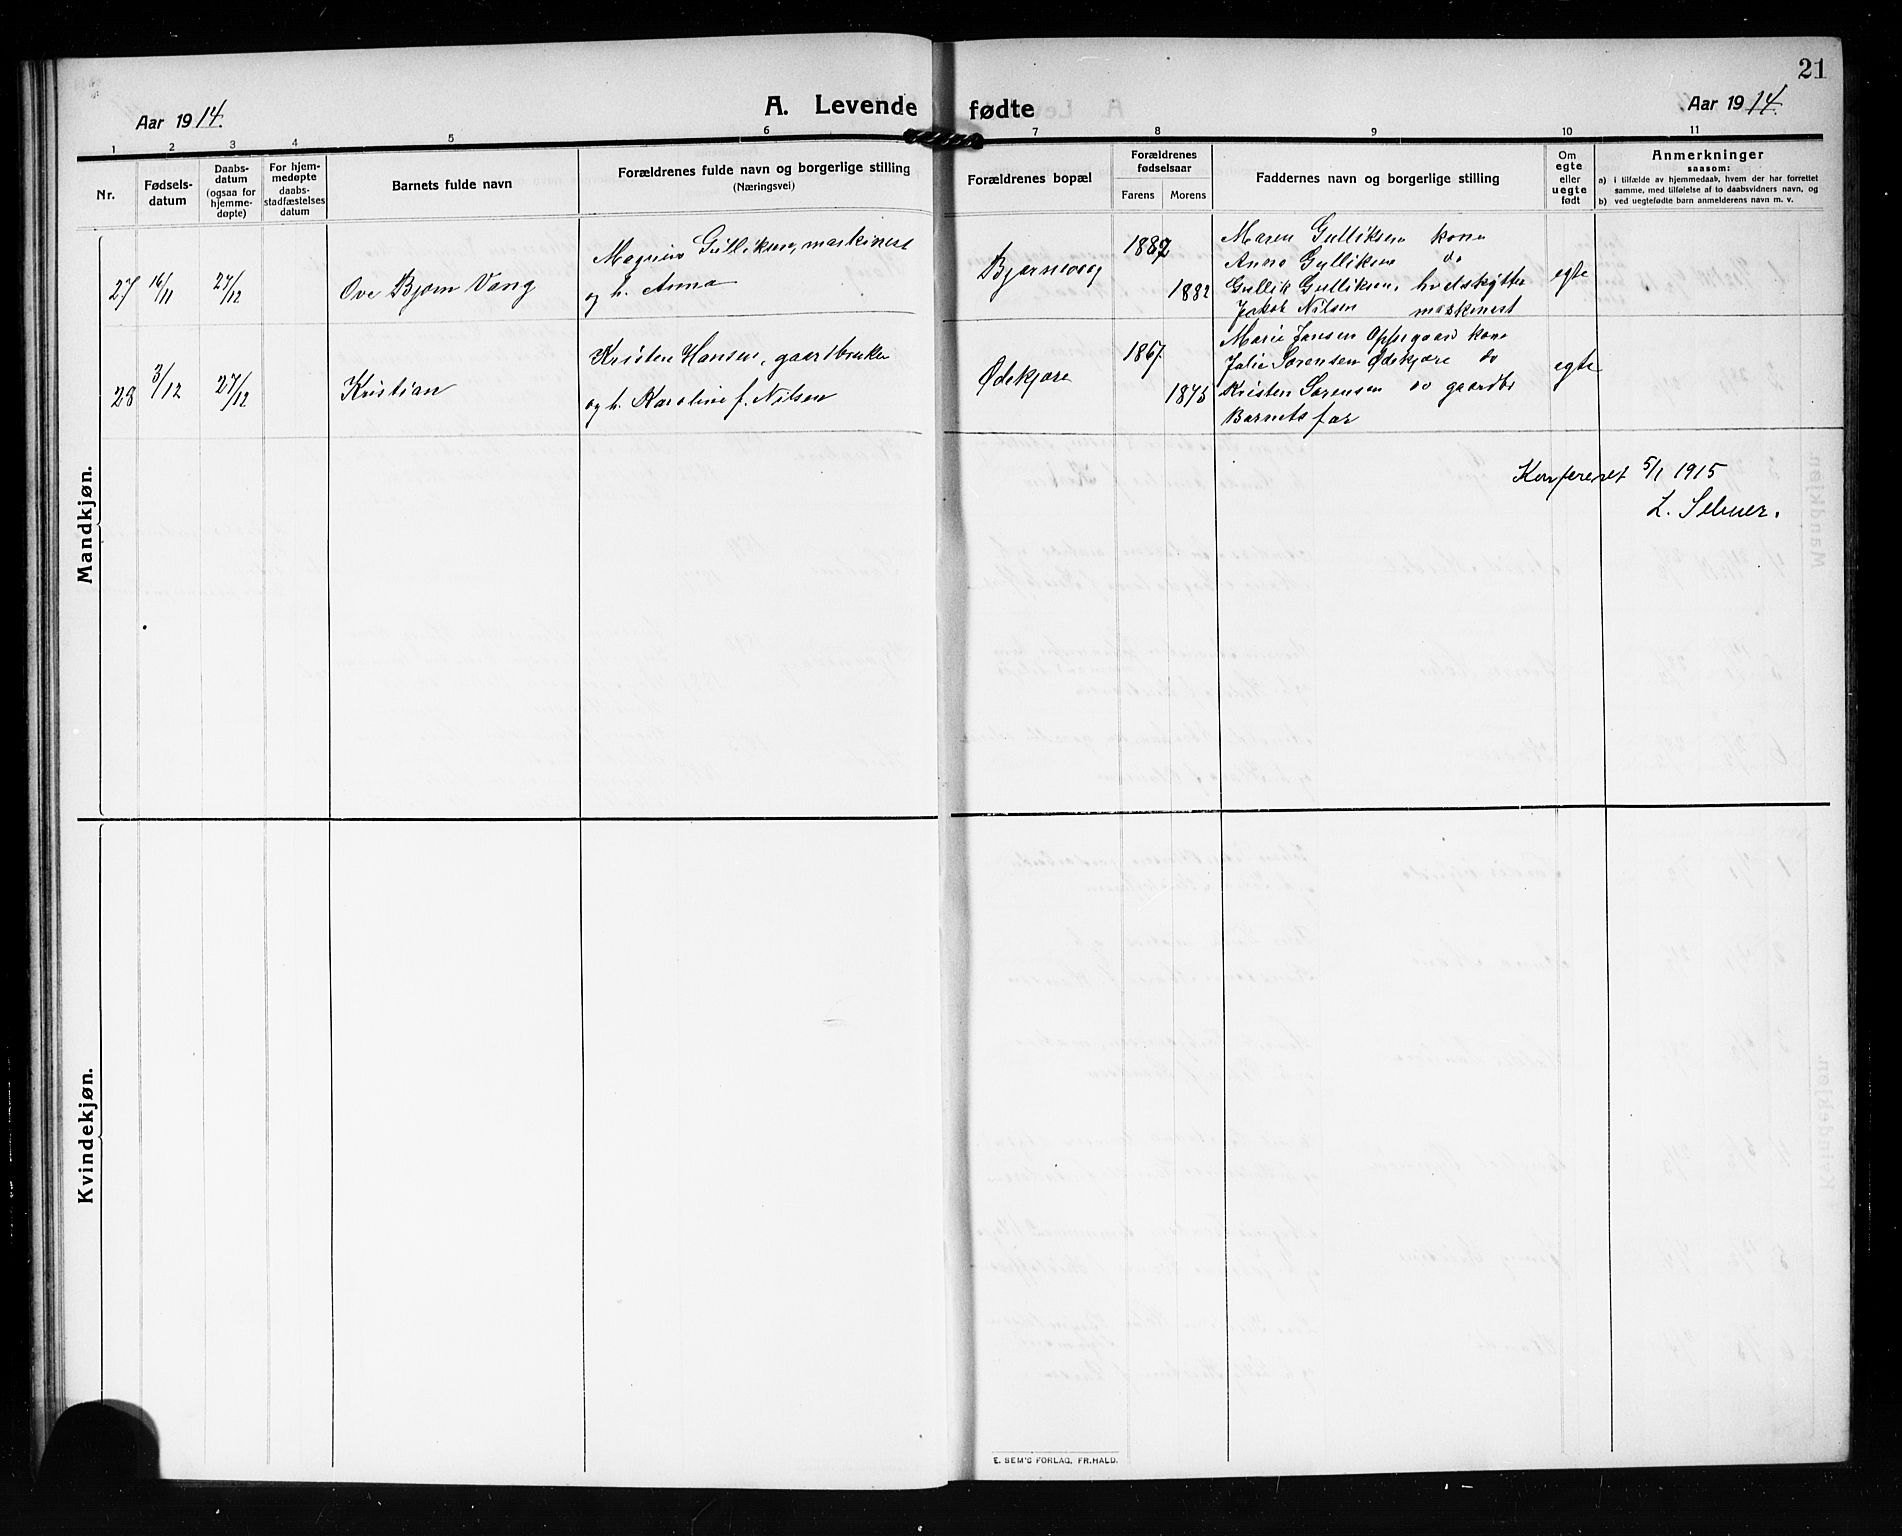 21
A. Levende fødte
Aar 1914.
Aar 1914.
1 2 3 4 5 6 7 8 9 10 11
Nr.
Fødsels-
datum
Daabs-
datum
(ogsaa for
hjemme-
døpte)
For hjem-
medøpte
daabs-
stadfæstelses
datum
Barnets fulde navn
Forældrenes fulde navn og borgerlige stilling
(Næringsvei)
Forældrenes bopæl
Forældrenes
fødselsaar
Farens Morens
Faddernes navn og borgerlige stilling
Om
egte
eller
uegte
født
Anmerkninger
saasom:
a) i tilfælde av hjemmedaab, hvem der har forrettet
samme, med tilføielse af to daabsvidners navn, og
b) ved uegtefødte barn anmelderens navn m. v.
Mandkjøn.
27 16/11 27/12 Ove Bjørn Vang
Magnus Gulliksen, maskinist
og h. Anna
Bjørnevaag
1882
1882
Maren Gulliksen kone
Anna Gulliksen do
Gullik Gulliksen, hvalskytter
Jakob Nilsen maskinist
egte
28 3/12 27/12 Kristian
Kristen Hansen, gaardbruker
og h. Karoline f. Nilsen
Ødekjære
1867
1875
Marie Jansen Oppegaard kone
Julie Sørensen Ødekjære do
Kristen Sørensen do gaardbr
Barnets far
egte
Konfereret 5/1 1915
L. Selmer.
Kvindekjøn.
E. SEM'S FORLAG, FR.HALD.